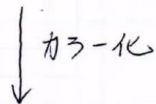 カラー化